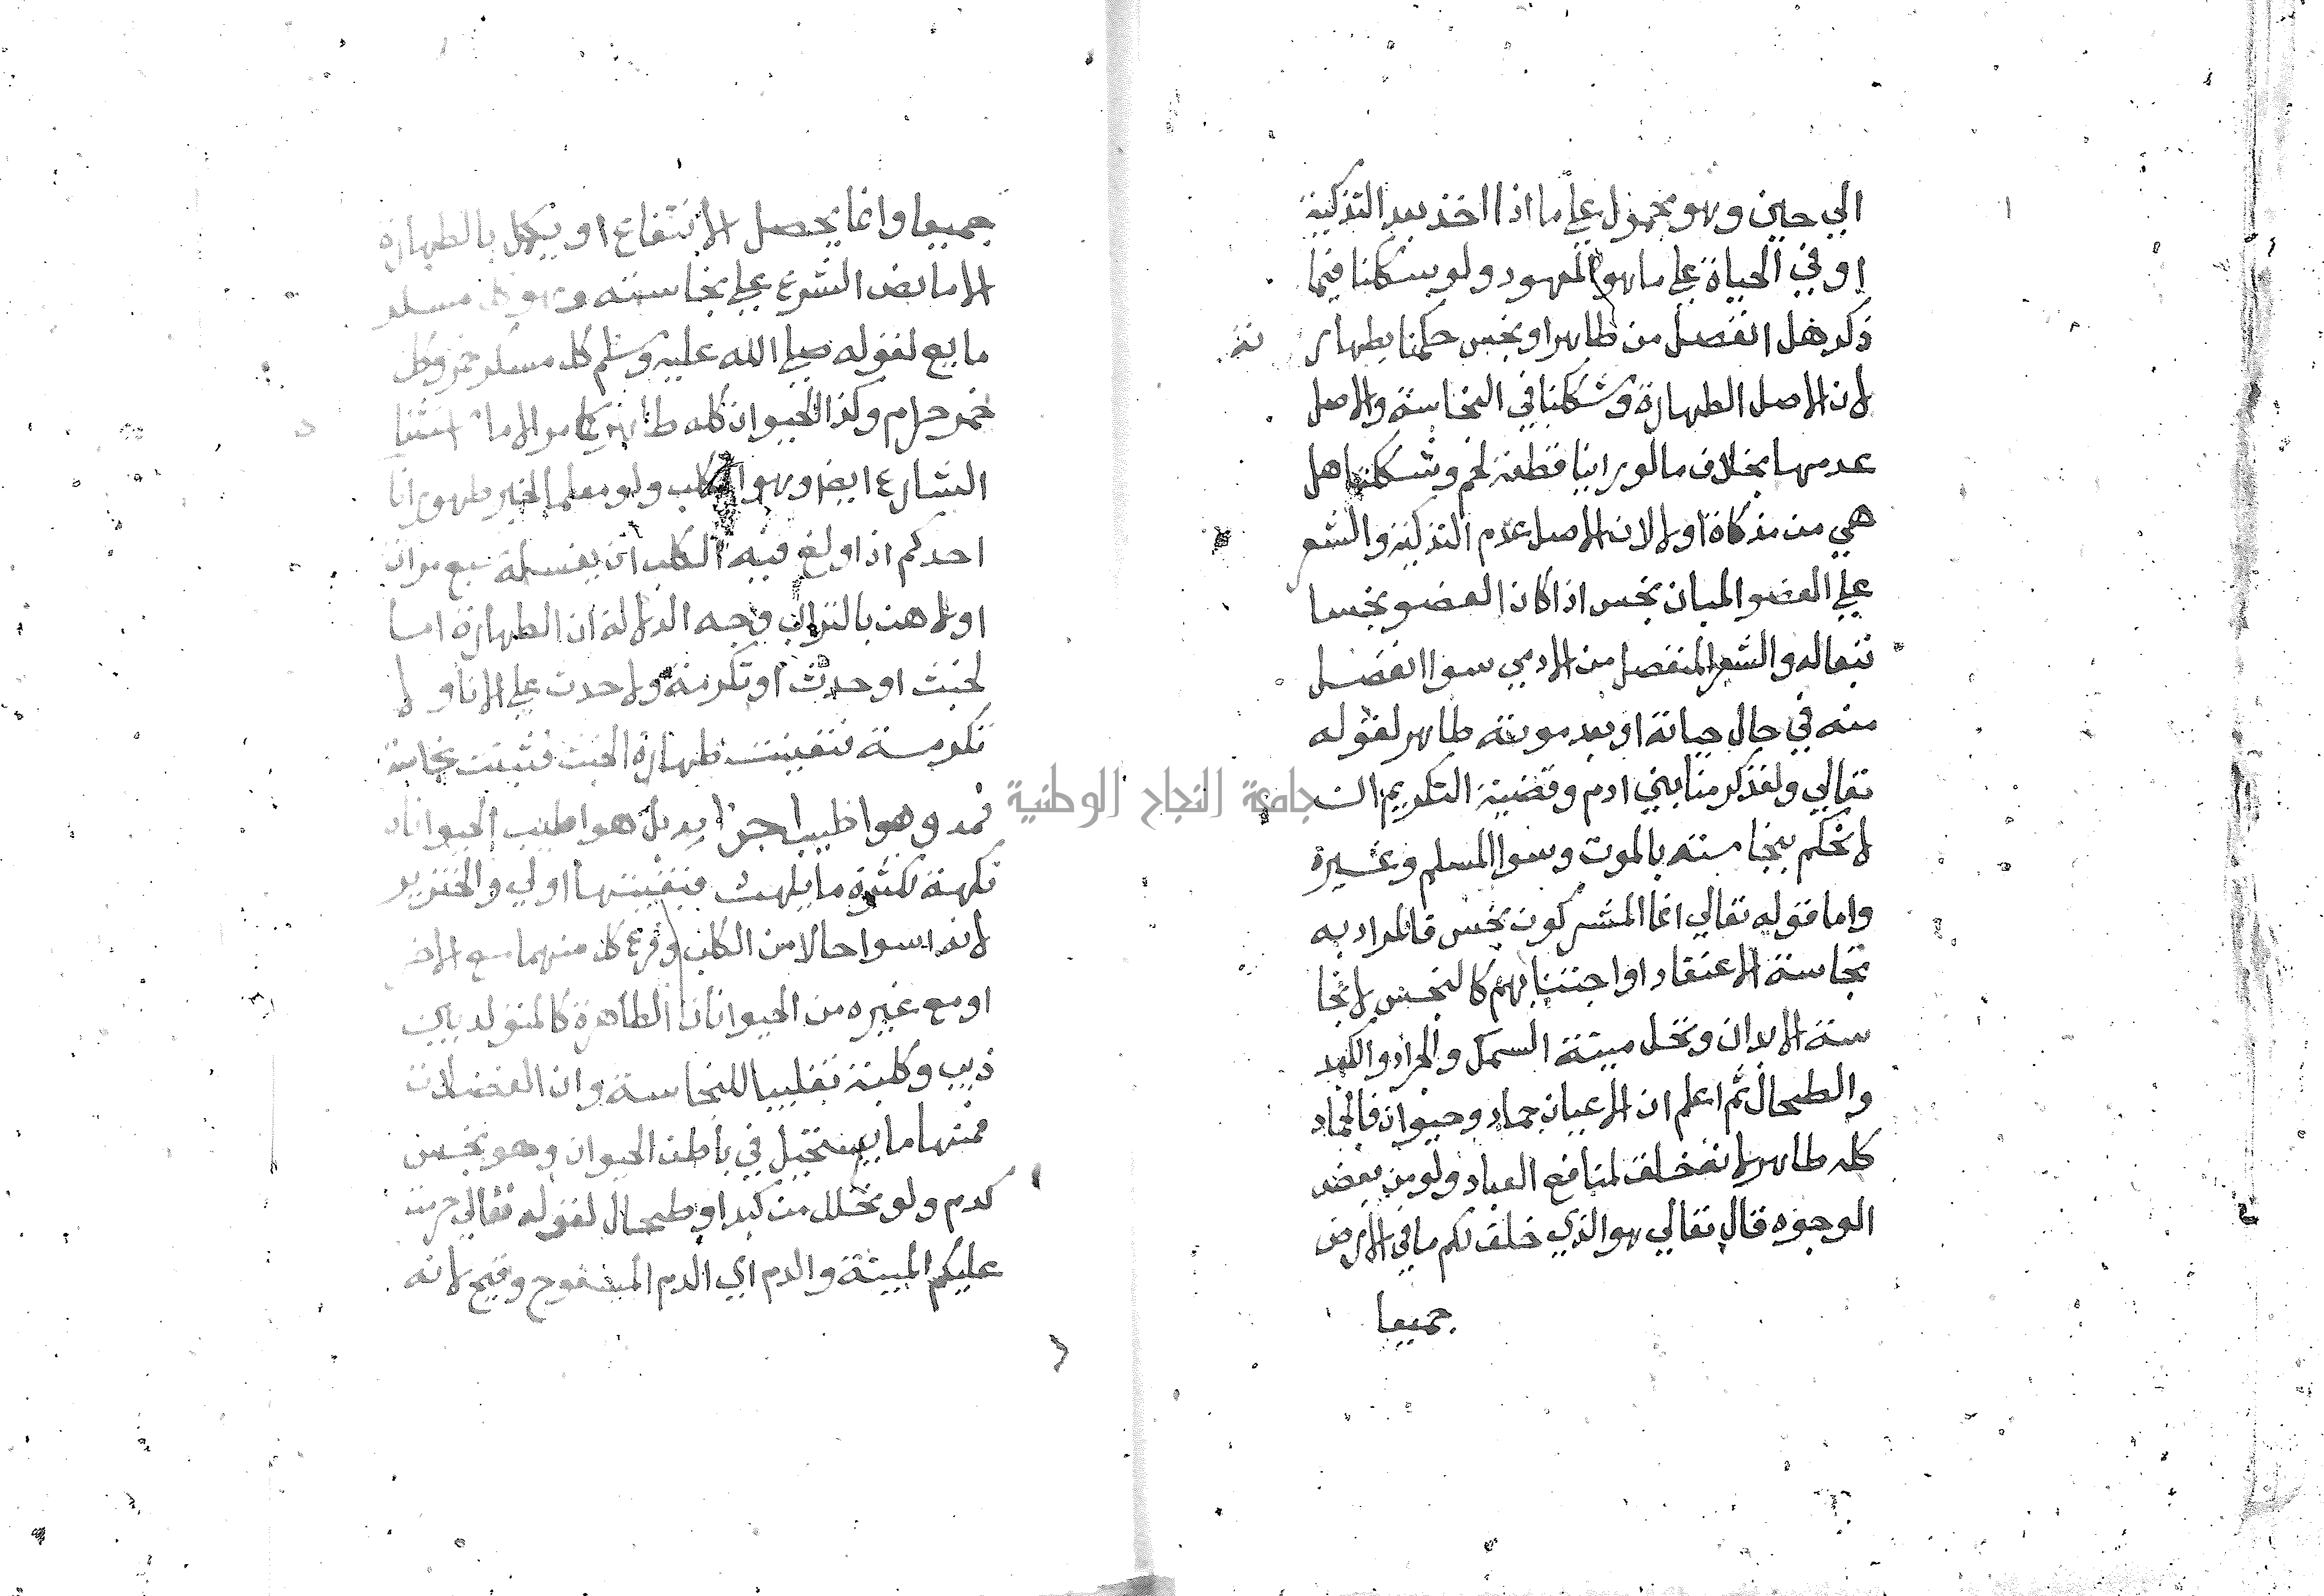 الي حين وهو محمول علي ما اذا اخذ بعد التذكية
او في الحياة علي ما هو المعهود ولو شككنا فيما
ذكر هل انفصل من طاهر او نجس حكمنا بطهار ته
لان الاصل الطهارة وشككنا في النجاسة والاصل
عدمها بخلاف ما لو راينا قطعة لحم وشككنا هل
هي من مذكاة او لا لان الاصل عدم التذكية والشعر
علي العضو المبان نجس اذا كان العضو نجسا
تبعا له والشعر المنفصل من الادمي سوا انفصل
منه في حال حياته او بعد موته طاهر لقوله
تعالي ولقد كرمنا بني ادم وقضية التكريم ان
لا نحكم بنجاسته بالموت وسوا المسلم وغيره
واما قوله تعالي انما المشركون نجس فالمراد به
نجاسة الاعتقاد او اجتنابهم كالنجس لا نجا
سة الابدان وتحل ميتة السمك والجراد والكبد
والطحال ثم اعلم ان الاعيان جماد وحيوان فالجماد
كله طاهر لانه خلق لمنافع العباد ولو من بعض
الوجوه قال تعالي هو الذي خلق لكم ما في الارض
جميعا
جميعا وانما يحصل الانتفاع او يكمل بالطهارة
الا ما نص الشرع علي نجاسته وهو كل مسكر
مايع لقوله صلي الله عليه وسلم كل مسكر خمر وكل
خمر حرام وكذا الحيوان كله طاهر كما مر الا ما استثنا
الشارع ايضا وهو الكلب ولو معلما لخبر طهور انا
احدكم اذا ولغ فيه الكلب ان يغسله سبع مرات
اولاهن بالتراب وجه الدلالة ان الطهارة اما
لخبث او حدث او تكرمة ولا حدث علي الانا ولا
تكرمة فتعينت طهارة الخبث فثبتت نجاسة
فمه وهو اطيب اجزايه بل هو اطيب الحيوانات
نكهة لكثرة ما يلهث فبقيتها اولي والخنزير
لانه اسوا حالا من الكلب وفرع كل منهما مع الاخر
او مع غيره من الحيوانات الطاهرة كالمتولد بين
ذيب وكلبة تغليبا للنجاسة وان الفضلات
فمنها ما يستحيل في باطن الحيوان وهو نجس
كدم ولو تحلل من كبد او طحال لقوله تعالي حرمت
عليكم الميتة والدم اي الدم المسفوح وقيح لانه
جامعة النجاح الوطنية